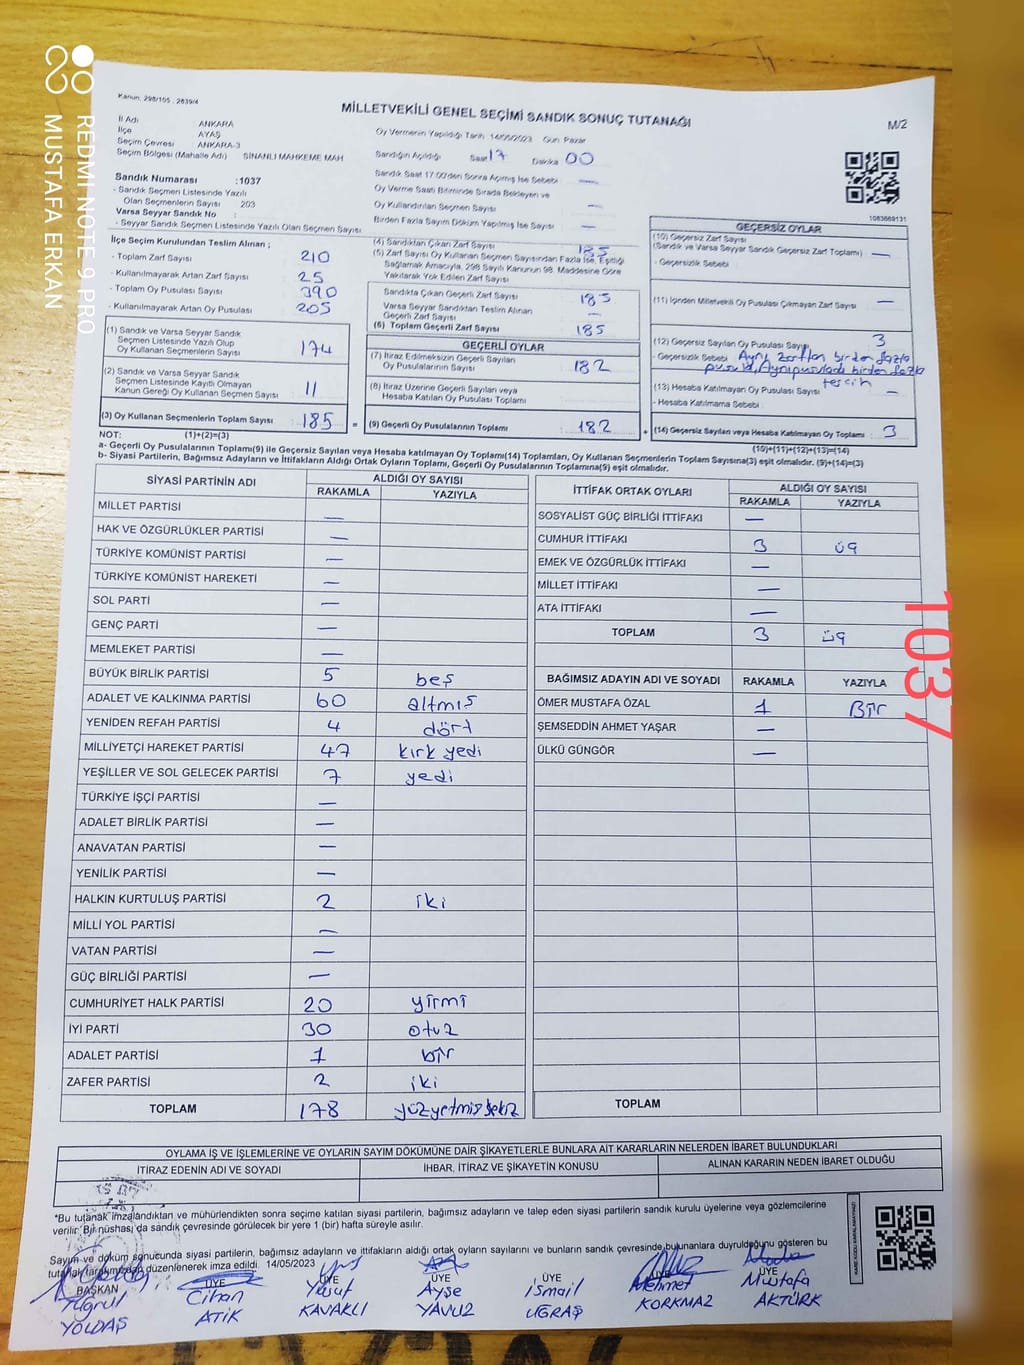 REDMI NOTE 9 PRO
MUSTAFA ERKAN
Kanun, 298/105 , 2839/4
MİLLETVEKİLİ GENEL SEÇİMİ SANDIK SONUÇ TUTANAĞI
M/2
İl Adı : ANKARA
İlçe : AYAŞ
Seçim Çevresi : ANKARA-3
Seçim Bölgesi (Mahalle Adı) : SİNANLI MAHKEME MAH
Sandık Numarası :1037
- Sandık Seçmen Listesinde Yazılı
Olan Seçmenlerin Sayısı : 203
Varsa Seyyar Sandık No :
- Seyyar Sandık Seçmen Listesinde Yazılı Olan Seçmen Sayısı
Oy Vermenin Yapıldığı Tarih: 14/05/2023 Gün: Pazar
Sandığın Açıldığı Saat 17 Dakika 00
Sandık Saat 17.00'den Sonra Açılmış İse Sebebi : —
Oy Verme Saati Bitiminde Sırada Bekleyen ve
Oy Kullandırılan Seçmen Sayısı : —
Birden Fazla Sayım Döküm Yapılmış İse Sayısı : —
1083669131
İlçe Seçim Kurulundan Teslim Alınan ;
- Toplam Zarf Sayısı : 210
- Kullanılmayarak Artan Zarf Sayısı : 25
- Toplam Oy Pusulası Sayısı : 390
- Kullanılmayarak Artan Oy Pusulası : 205
(1) Sandık ve Varsa Seyyar Sandık
Seçmen Listesinde Yazılı Olup
Oy Kullanan Seçmenlerin Sayısı : 174
(2) Sandık ve Varsa Seyyar Sandık
Seçmen Listesinde Kayıtlı Olmayan
Kanun Gereği Oy Kullanan Seçmen Sayısı : 11
(3) Oy Kullanan Seçmenlerin Toplam Sayısı : 185
(4) Sandıktan Çıkan Zarf Sayısı : 185
(5) Zarf Sayısı Oy Kullanan Seçmen Sayısından Fazla İse, Eşitliği
Sağlamak Amacıyla, 298 Sayılı Kanunun 98. Maddesine Göre
Yakılarak Yok Edilen Zarf Sayısı
Sandıkta Çıkan Geçerli Zarf Sayısı : 185
Varsa Seyyar Sandıktan Teslim Alınan
Geçerli Zarf Sayısı : —
(6) Toplam Geçerli Zarf Sayısı : 185
GEÇERLİ OYLAR
(7) İtiraz Edilmeksizin Geçerli Sayılan
Oy Pusulalarının Sayısı : 182
(8) İtiraz Üzerine Geçerli Sayılan veya
Hesaba Katılan Oy Pusulası Toplamı :
= (9) Geçerli Oy Pusulalarının Toplamı : 182
GEÇERSİZ OYLAR
(10) Geçersiz Zarf Sayısı
(Sandık ve Varsa Seyyar Sandık Geçersiz Zarf Toplamı) : —
- Geçersizlik Sebebi :
(11) İçinden Milletvekili Oy Pusulası Çıkmayan Zarf Sayısı : —
(12) Geçersiz Sayılan Oy Pusulası Sayısı : 3
- Geçersizlik Sebebi : Aynı zarftan birden fazla
pusula, Aynı pusulada birden fazla
tercih
(13) Hesaba Katılmayan Oy Pusulası Sayısı : —
- Hesaba Katılmama Sebebi :
+ (14) Geçersiz Sayılan veya Hesaba Katılmayan Oy Toplamı : 3
NOT: (1)+(2)=(3) (10)+(11)+(12)+(13)=(14)
a- Geçerli Oy Pusulalarının Toplamı(9) ile Geçersiz Sayılan veya Hesaba katılmayan Oy Toplamı(14) Toplamları, Oy Kullanan Seçmenlerin Toplam Sayısına(3) eşit olmalıdır. (9)+(14)=(3)
b- Siyasi Partilerin, Bağımsız Adayların ve İttifakların Aldığı Ortak Oyların Toplamı, Geçerli Oy Pusulalarının Toplamına(9) eşit olmalıdır.
SİYASİ PARTİNİN ADI ALDIĞI OY SAYISI
RAKAMLA YAZIYLA
MİLLET PARTİSİ —
HAK VE ÖZGÜRLÜKLER PARTİSİ —
TÜRKİYE KOMÜNİST PARTİSİ —
TÜRKİYE KOMÜNİST HAREKETİ —
SOL PARTİ —
GENÇ PARTİ —
MEMLEKET PARTİSİ —
BÜYÜK BİRLİK PARTİSİ 5 beş
ADALET VE KALKINMA PARTİSİ 60 altmış
YENİDEN REFAH PARTİSİ 4 dört
MİLLİYETÇİ HAREKET PARTİSİ 47 kırk yedi
YEŞİLLER VE SOL GELECEK PARTİSİ 7 yedi
TÜRKİYE İŞÇİ PARTİSİ —
ADALET BİRLİK PARTİSİ —
ANAVATAN PARTİSİ —
YENİLİK PARTİSİ —
HALKIN KURTULUŞ PARTİSİ 2 iki
MİLLİ YOL PARTİSİ —
VATAN PARTİSİ —
GÜÇ BİRLİĞİ PARTİSİ —
CUMHURİYET HALK PARTİSİ 20 yirmi
İYİ PARTİ 30 otuz
ADALET PARTİSİ 1 bir
ZAFER PARTİSİ 2 iki
TOPLAM 178 yüzyetmişsekiz
İTTİFAK ORTAK OYLARI ALDIĞI OY SAYISI
RAKAMLA YAZIYLA
SOSYALİST GÜÇ BİRLİĞİ İTTİFAKI —
CUMHUR İTTİFAKI 3 üç
EMEK VE ÖZGÜRLÜK İTTİFAKI —
MİLLET İTTİFAKI —
ATA İTTİFAKI —
TOPLAM 3 üç
BAĞIMSIZ ADAYIN ADI VE SOYADI RAKAMLA YAZIYLA
ÖMER MUSTAFA ÖZAL 1 Bir
ŞEMSEDDİN AHMET YAŞAR —
ÜLKÜ GÜNGÖR —
TOPLAM
1037
OYLAMA İŞ VE İŞLEMLERİNE VE OYLARIN SAYIM DÖKÜMÜNE DAİR ŞİKAYETLERLE BUNLARA AİT KARARLARIN NELERDEN İBARET BULUNDUKLARI
İTİRAZ EDENİN ADI VE SOYADI İHBAR, İTİRAZ VE ŞİKAYETİN KONUSU ALINAN KARARIN NEDEN İBARET OLDUĞU
*Bu tutanak imzalandıktan ve mühürlendikten sonra seçime katılan siyasi partilerin, bağımsız adayların ve talep eden siyasi partilerin sandık kurulu üyelerine veya gözlemcilerine
verilir. Bir nüshası da sandık çevresinde görülecek bir yere 1 (bir) hafta süreyle asılır.
Sayım ve döküm sonucunda siyasi partilerin, bağımsız adayların ve ittifakların aldığı ortak oyların sayılarını ve bunların sandık çevresinde bulunanlara duyrulduğunu gösteren bu
tutanak tarafımızdan düzenlenerek imza edildi. 14/05/2023
BAŞKAN ÜYE ÜYE ÜYE ÜYE ÜYE ÜYE
Tuğrul Cihan Yusuf Ayşe İsmail Mehmet Mustafa
YOLDAŞ ATİK KAVAKLI YAVUZ UĞRAŞ KORKMAZ AKTÜRK